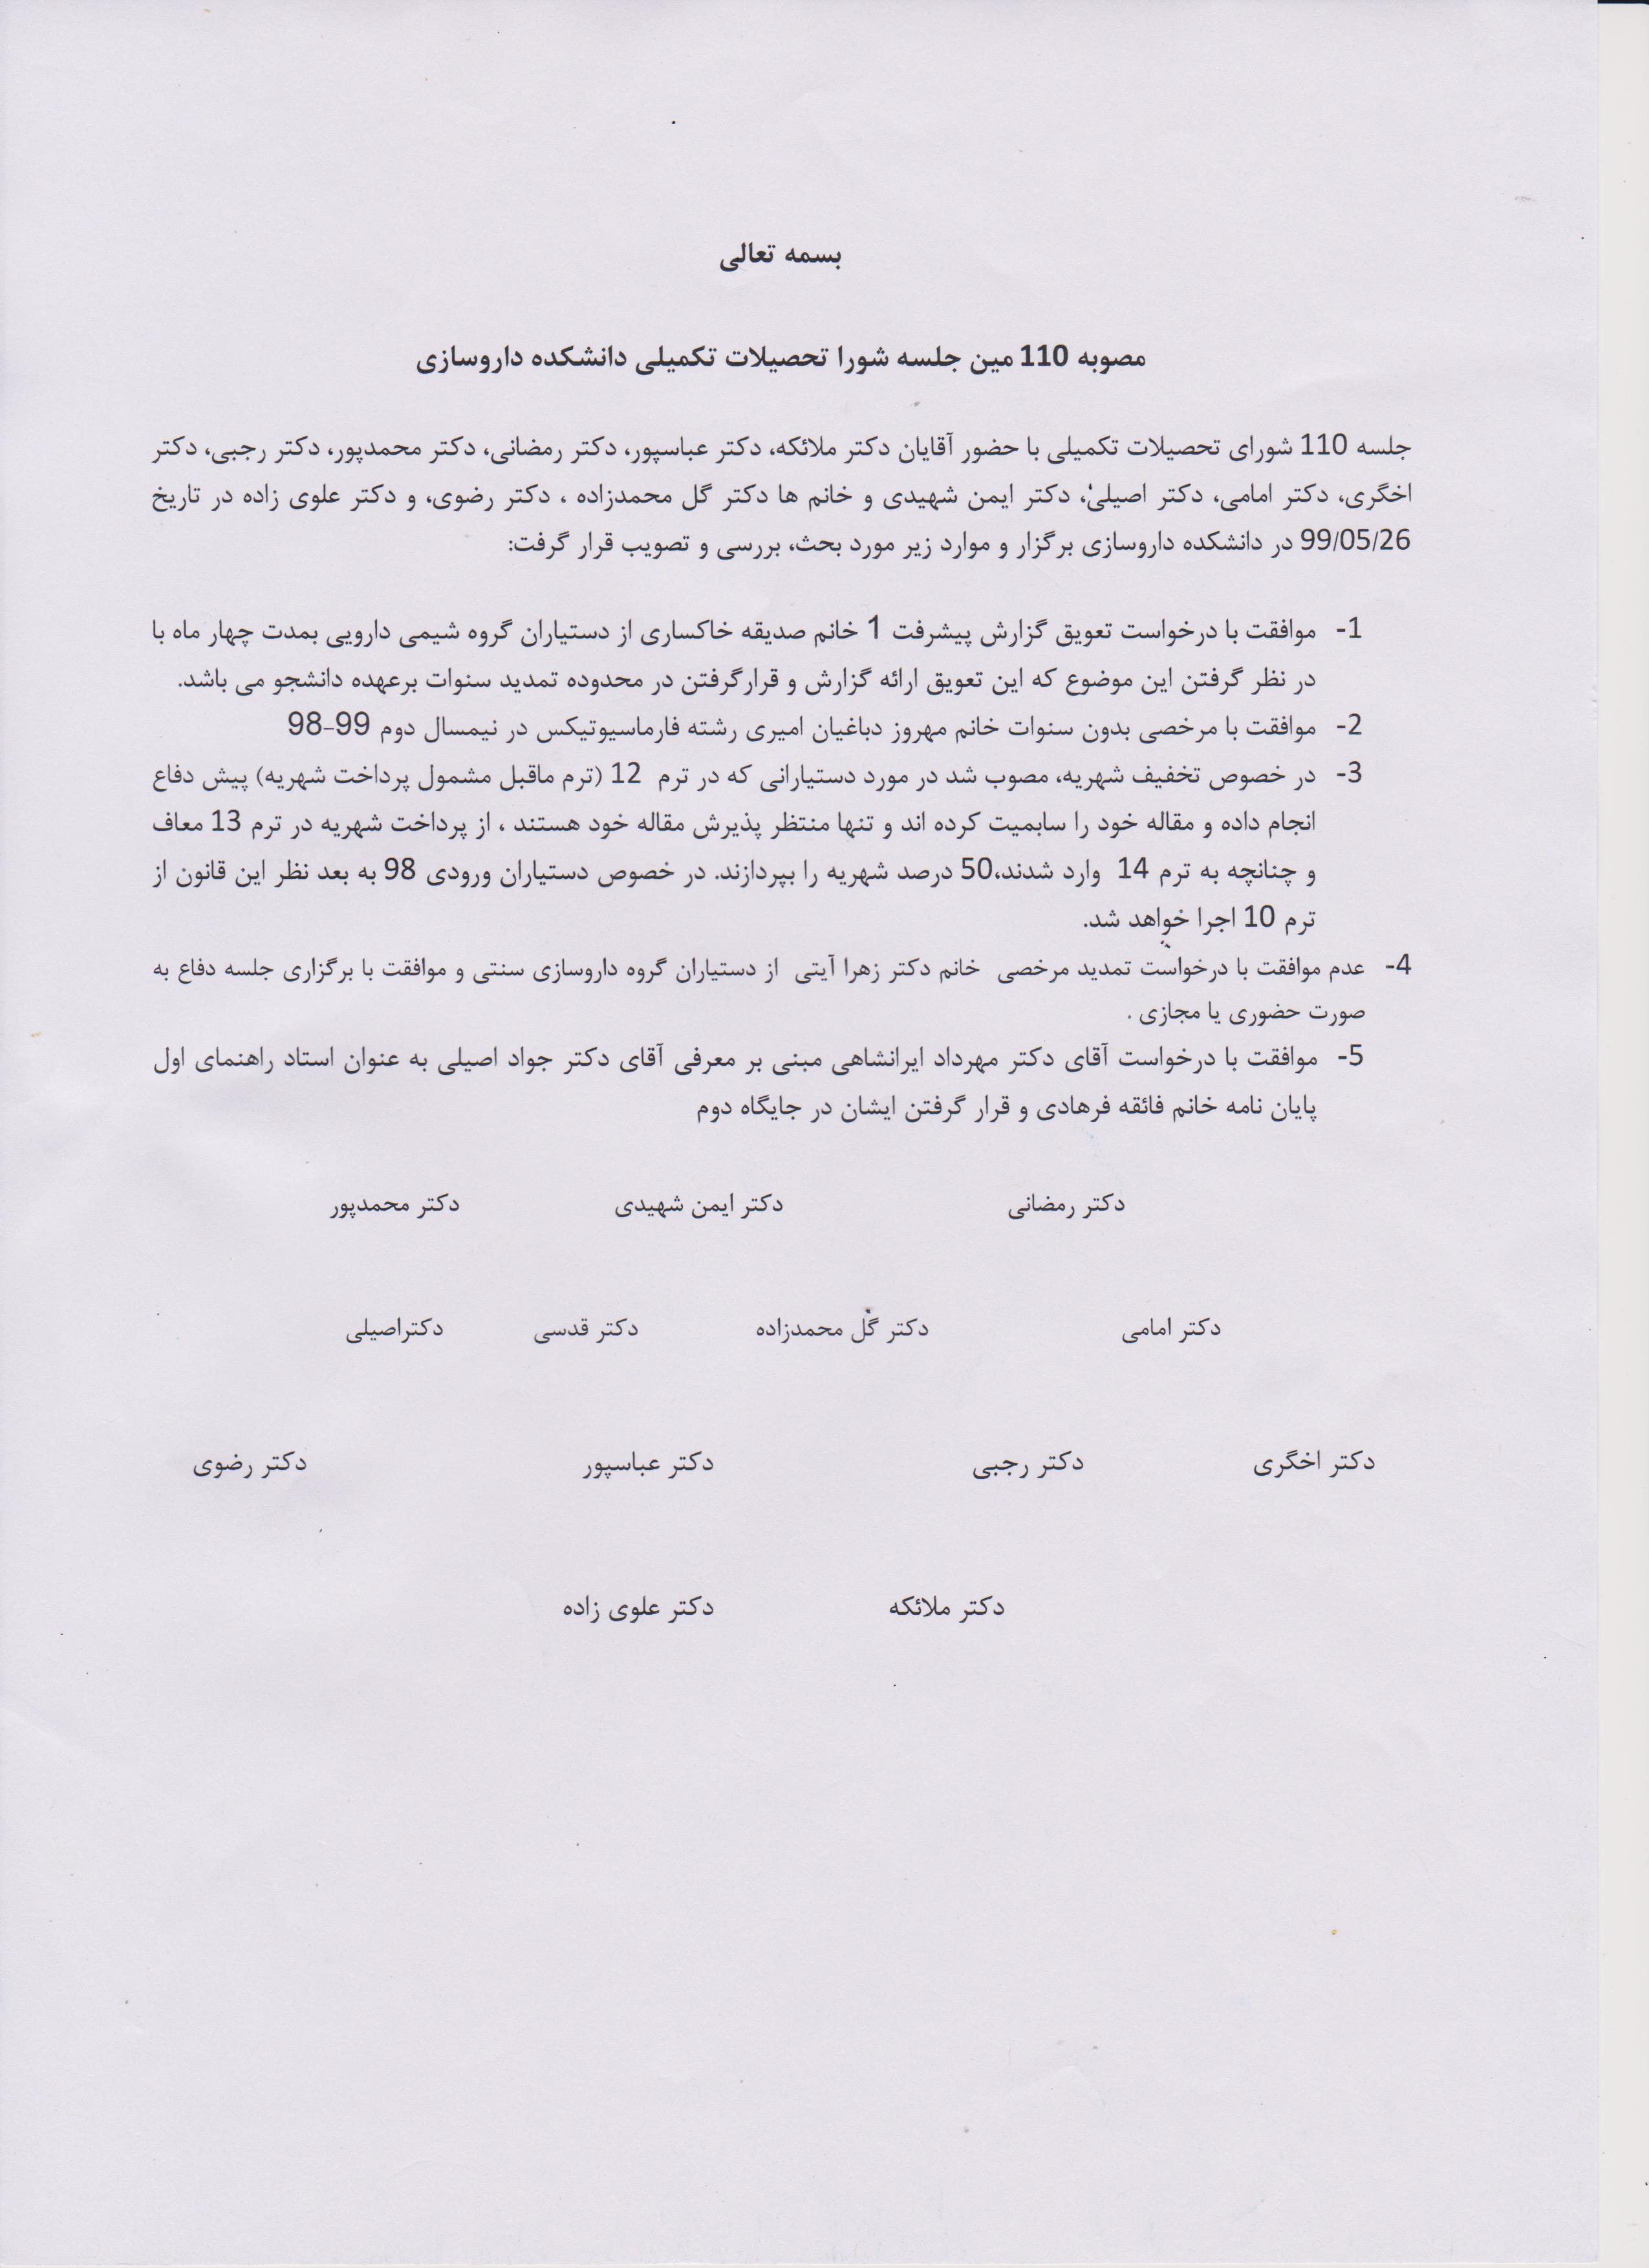 بسمه تعالی
مصوبه 110 مین جلسه شورا تحصیلات تکمیلی دانشکده داروسازی
جلسه 110 شورای تحصیلات تکمیلی با حضور آقایان دکتر ملائکه، دکتر عباسپور، دکتر رمضانی، دکتر محمدپور، دکتر رجبی، دکتر
اخگری، دکتر امامی، دکتر اصیلی، دکتر ایمن شهیدی و خانم ها دکتر گل محمدزاده ، دکتر رضوی، و دکتر علوی زاده در تاریخ
99/05/26 در دانشکده داروسازی برگزار و موارد زیر مورد بحث، بررسی و تصویب قرار گرفت:
1- موافقت با درخواست تعویق گزارش پیشرفت 1 خانم صدیقه خاکساری از دستیاران گروه شیمی دارویی بمدت چهار ماه با
در نظر گرفتن این موضوع که این تعویق ارائه گزارش و قرارگرفتن در محدوده تمدید سنوات برعهده دانشجو می باشد.
2- موافقت با مرخصی بدون سنوات خانم مهروز دباغیان امیری رشته فارماسیوتیکس در نیمسال دوم 99-98
3- در خصوص تخفیف شهریه، مصوب شد در مورد دستیارانی که در ترم 12 (ترم ماقبل مشمول پرداخت شهریه) پیش دفاع
انجام داده و مقاله خود را سابمیت کرده اند و تنها منتظر پذیرش مقاله خود هستند ، از پرداخت شهریه در ترم 13 معاف
و چنانچه به ترم 14 وارد شدند،50 درصد شهریه را بپردازند. در خصوص دستیاران ورودی 98 به بعد نظر این قانون از
ترم 10 اجرا خواهد شد.
4- عدم موافقت با درخواست تمدید مرخصی خانم دکتر زهرا آیتی از دستیاران گروه داروسازی سنتی و موافقت با برگزاری جلسه دفاع به
صورت حضوری یا مجازی .
5- موافقت با درخواست آقای دکتر مهرداد ایرانشاهی مبنی بر معرفی آقای دکتر جواد اصیلی به عنوان استاد راهنمای اول
پایان نامه خانم فائقه فرهادی و قرار گرفتن ایشان در جایگاه دوم
دکتر رمضانی دکتر ایمن شهیدی دکتر محمدپور
دکتر امامی دکتر گل محمدزاده دکتر قدسی دکتراصیلی
دکتر اخگری دکتر رجبی دکتر عباسپور دکتر رضوی
دکتر ملائکه دکتر علوی زاده